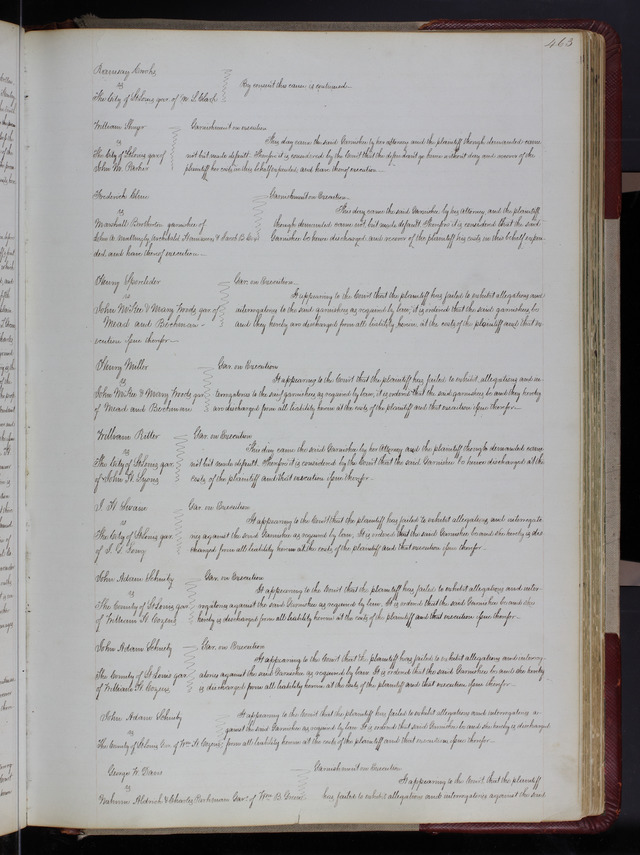 463
Ramsay Crooks
vs
The City of St Louis gar. of M. L. Clark
By consent this cause is continued.
William
vs
The City of St Louis gar of
John M. Parker
Garnishment on execution
This day came the said Garnishee by her attorney and the plaintiff though demanded came
not but made default. Therefore it is considered by the Court that the defendant go hence without day and recover of the
plaintiff her costs in this behalf expended, and have thereof execution.
Frederick
vs
Marshall Brotherton garnishee of
John A. Archibald & Jacob B.
Garnishment on Execution
This day came the said Garnishee by his Attorney, and the plaintiff
though demanded came not, but made default. Therefore it is considered that the said
Garnishee be hence discharged and recover of the plaintiff his costs in this behalf expen-
ded and have thereof execution.
Henry
vs
John McKee & Mary Woods gar of
Mead and
Gar. on Execution
It appearing to the Court that the plaintiff has failed to exhibit allegations and
interrogatories to the said garnishees as required by law, it is ordered that the said garnishees be
and they hereby are discharged from all liability herein, at the costs of the plaintiff and that ex-
ecution issue therefor.
Henry Miller
vs
John McKee & Mary Woods gar
of Mead and
Gar. on Execution
It appearing to the Court that the plaintiff has failed to exhibit allegations and in-
terrogatories to the said garnishees as required by law, it is ordered that the said garnishees be and they hereby
are discharged from all liability herein at the costs of the plaintiff and that execution issue therefor.
William Ritter
vs
The City of St Louis gar.
of John H. Lyons
Gar. on Execution
This day came the said Garnishee by her Attorney and the plaintiff though demanded came
not but made default. Therefore it is considered by the Court that the said Garnishee be hence discharged at the
costs of the plaintiff and that execution issue therefor.
J. H. Swane
vs
The City of St Louis gar
of
Gar. on Execution
It appearing to the Court that the plaintiff has failed to exhibit allegations and interrogato-
ries against the said Garnishee as required by law, It is ordered that the said Garnishee be and she hereby is dis-
charged from all liability herein at the costs of the plaintiff and that execution issue therefor.
John Adam
vs
The County of St Louis gar
of William H. Cozens
Gar. on Execution
It appearing to the Court that the plaintiff has failed to exhibit allegations and inter-
rogatories against the said Garnishee as required by law. It is ordered that the said Garnishee be and she
hereby is discharged from all liability herein at the costs of the plaintiff and that execution issue therefor.
John Adam
vs
The County of St Louis gar
of William H. Cozens
Gar. on Execution
It appearing to the Court that the plaintiff has failed to exhibit allegations and interrog-
atories against the said Garnishee as required by law It is ordered that the said Garnishee be and she hereby
is discharged from all liability herein at the costs of the plaintiff and that execution issue therefor.
John Adam
vs
The County of St Louis Gar. of Wm H Cozens
It appearing to the Court that the plaintiff has failed to exhibit allegations and interrogatories a-
gainst the said Garnishee as required by law It is ordered that said Garnishee be and she hereby is discharged
from all liability herein at the costs of the plaintiff and that execution issue therefor.
George W. Davis
vs
Aldrich & Charles Gar. of Wm B
Garnishment on Execution
It appearing to the Court that the plaintiff
has failed to exhibit allegations and interrogatories against the said